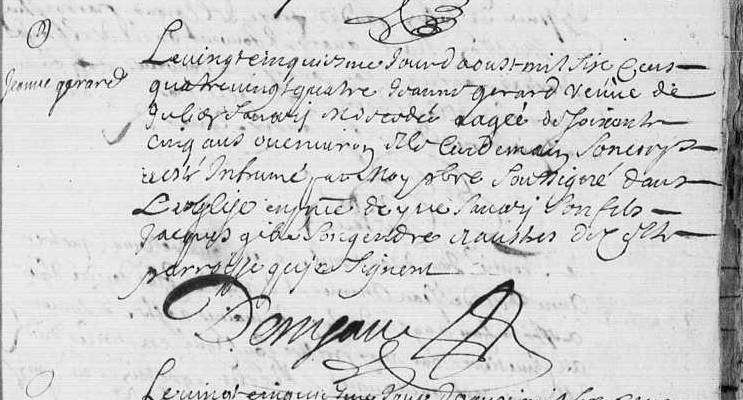 Jeanne gerard
Le vingt cinquiesme Jour d aoust mil six Cens
quatre vingt quatre Jeanne gerard veuve de
Julien Savari est decedée aagée de soixante
cinq ans ou environ et le lendemain son corps
a esté Inhumé par Moy pbre soussigné dans
L eglise en pnce de Savari son fils
Jacques son gendre et aultres de cette
parroisse qui je signent
Le vingt cinquiesme Jour d aoust mil six Cens